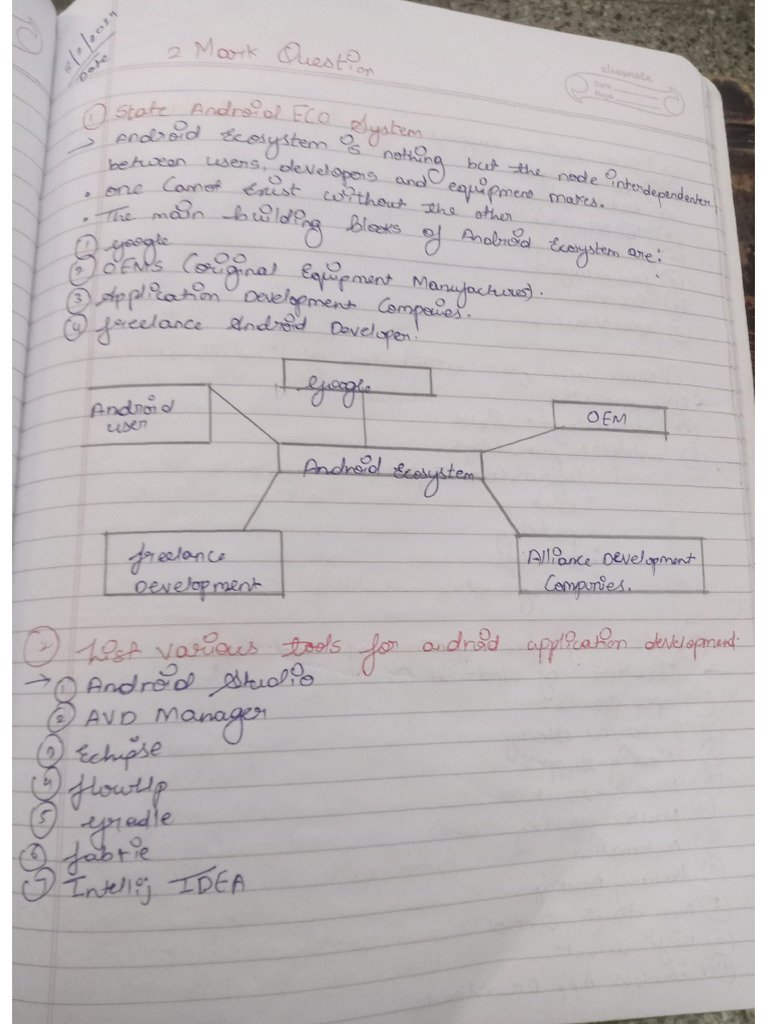 Date
2 Mark Question
classmate
Date
Page
① State Android ECO System
→ Android Ecosystem is nothing but the node interdependenter
between users, developers and equipment makes.
• one Cannot Exist without the other
• The main building blocks of Android Ecosystem are:
① google
② OEMS (original Equipment Manufactures).
③ Application Development Companies.
④ freelance Android Developer.
google
Android
user
OEM
Android Ecosystem
freelance
Development
Alliance Development
Companies.
② List various tools for android application development.
→ ① Android Studio
② AVD Manager
③ Eclipse
④ flowUp
⑤ gradle
⑥ fabric
⑦ Intellij IDEA